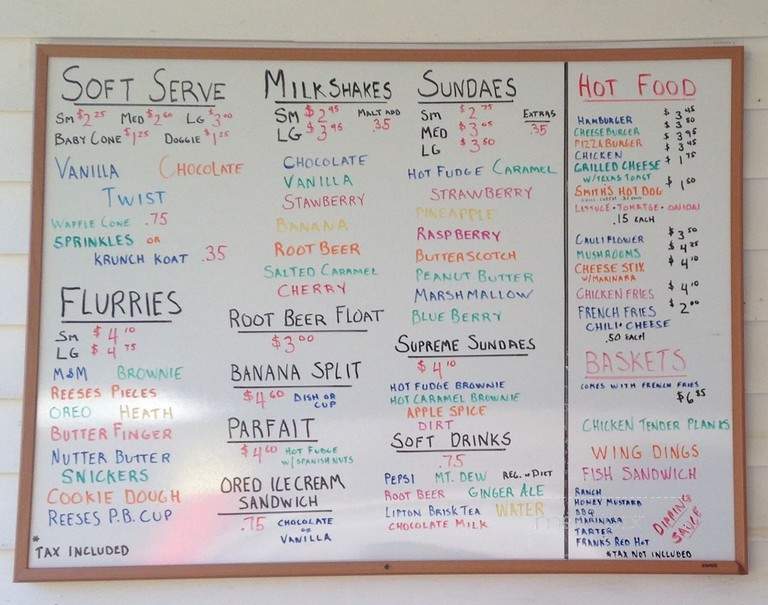 SOFT SERVE
SM $2.25 MED $2.60 LG $3.00
BABY CONE $1.25 DOGGIE $1.25
VANILLA CHOCOLATE
TWIST
WAFFLE CONE .75
SPRINKLES OR
KRUNCH KOAT .35
FLURRIES
SM $4.10
LG $4.75
M&M BROWNIE
REESES PIECES
OREO HEATH
BUTTER FINGER
NUTTER BUTTER
SNICKERS
COOKIE DOUGH
REESES P.B. CUP
* TAX INCLUDED
MILKSHAKES
SM $2.95 MALT ADD
LG $3.95 .35
CHOCOLATE
VANILLA
STAWBERRY
BANANA
ROOT BEER
SALTED CARAMEL
CHERRY
ROOT BEER FLOAT
$3.00
BANANA SPLIT
$4.60 DISH OR
CUP
PARFAIT
$4.60 HOT FUDGE
W/SPANISH NUTS
OREO ICE CREAM
SANDWICH
.75 CHOCOLATE
OR
VANILLA
SUNDAES
SM $2.75 EXTRAS
MED $3.05 .35
LG $3.50
HOT FUDGE CARAMEL
STRAWBERRY
PINEAPPLE
RASPBERRY
BUTTERSCOTCH
PEANUT BUTTER
MARSHMALLOW
BLUE BERRY
SUPREME SUNDAES
$4.10
HOT FUDGE BROWNIE
HOT CARAMEL BROWNIE
APPLE SPICE
DIRT
SOFT DRINKS
.75
PEPSI MT. DEW REG. or DIET
ROOT BEER GINGER ALE
LIPTON BRISK TEA WATER
CHOCOLATE MILK
HOT FOOD
HAMBURGER $3.45
CHEESEBURGER $3.50
PIZZABURGER $3.95
CHICKEN $3.45
GRILLED CHEESE $1.75
W/TEXAS TOAST
SMITH'S HOT DOG $1.60
LETTUCE • TOMATOE • ONION
.15 EACH
CAULIFLOWER $3.50
MUSHROOMS $4.25
CHEESE STIX $4.10
W/MARINARA
CHICKEN FRIES $4.10
FRENCH FRIES $2.00
CHILI • CHEESE
.50 EACH
BASKETS
COMES WITH FRENCH FRIES
$6.85
CHICKEN TENDER PLANKS
WING DINGS
FISH SANDWICH
RANCH
HONEY MUSTARD
BBQ
MARINARA
TARTER
FRANKS RED HOT
DIPPING
SAUCE
*TAX NOT INCLUDED